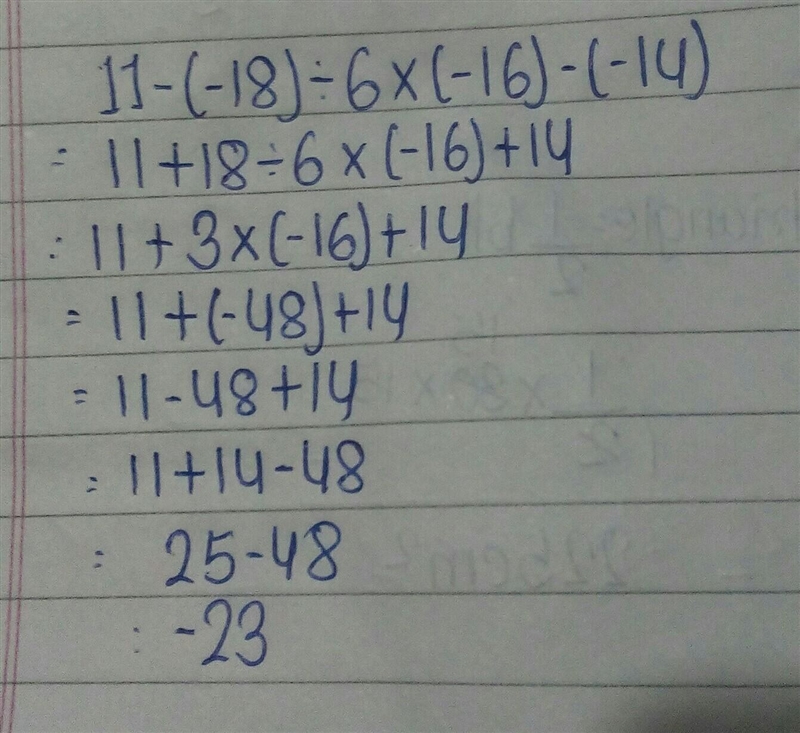 11-(-18)÷6×(-16)-(-14)
= 11+18÷6×(-16)+14
: 11+3×(-16)+14
= 11+(-48)+14
= 11-48+14
= 11+14-48
= 25-48
: -23